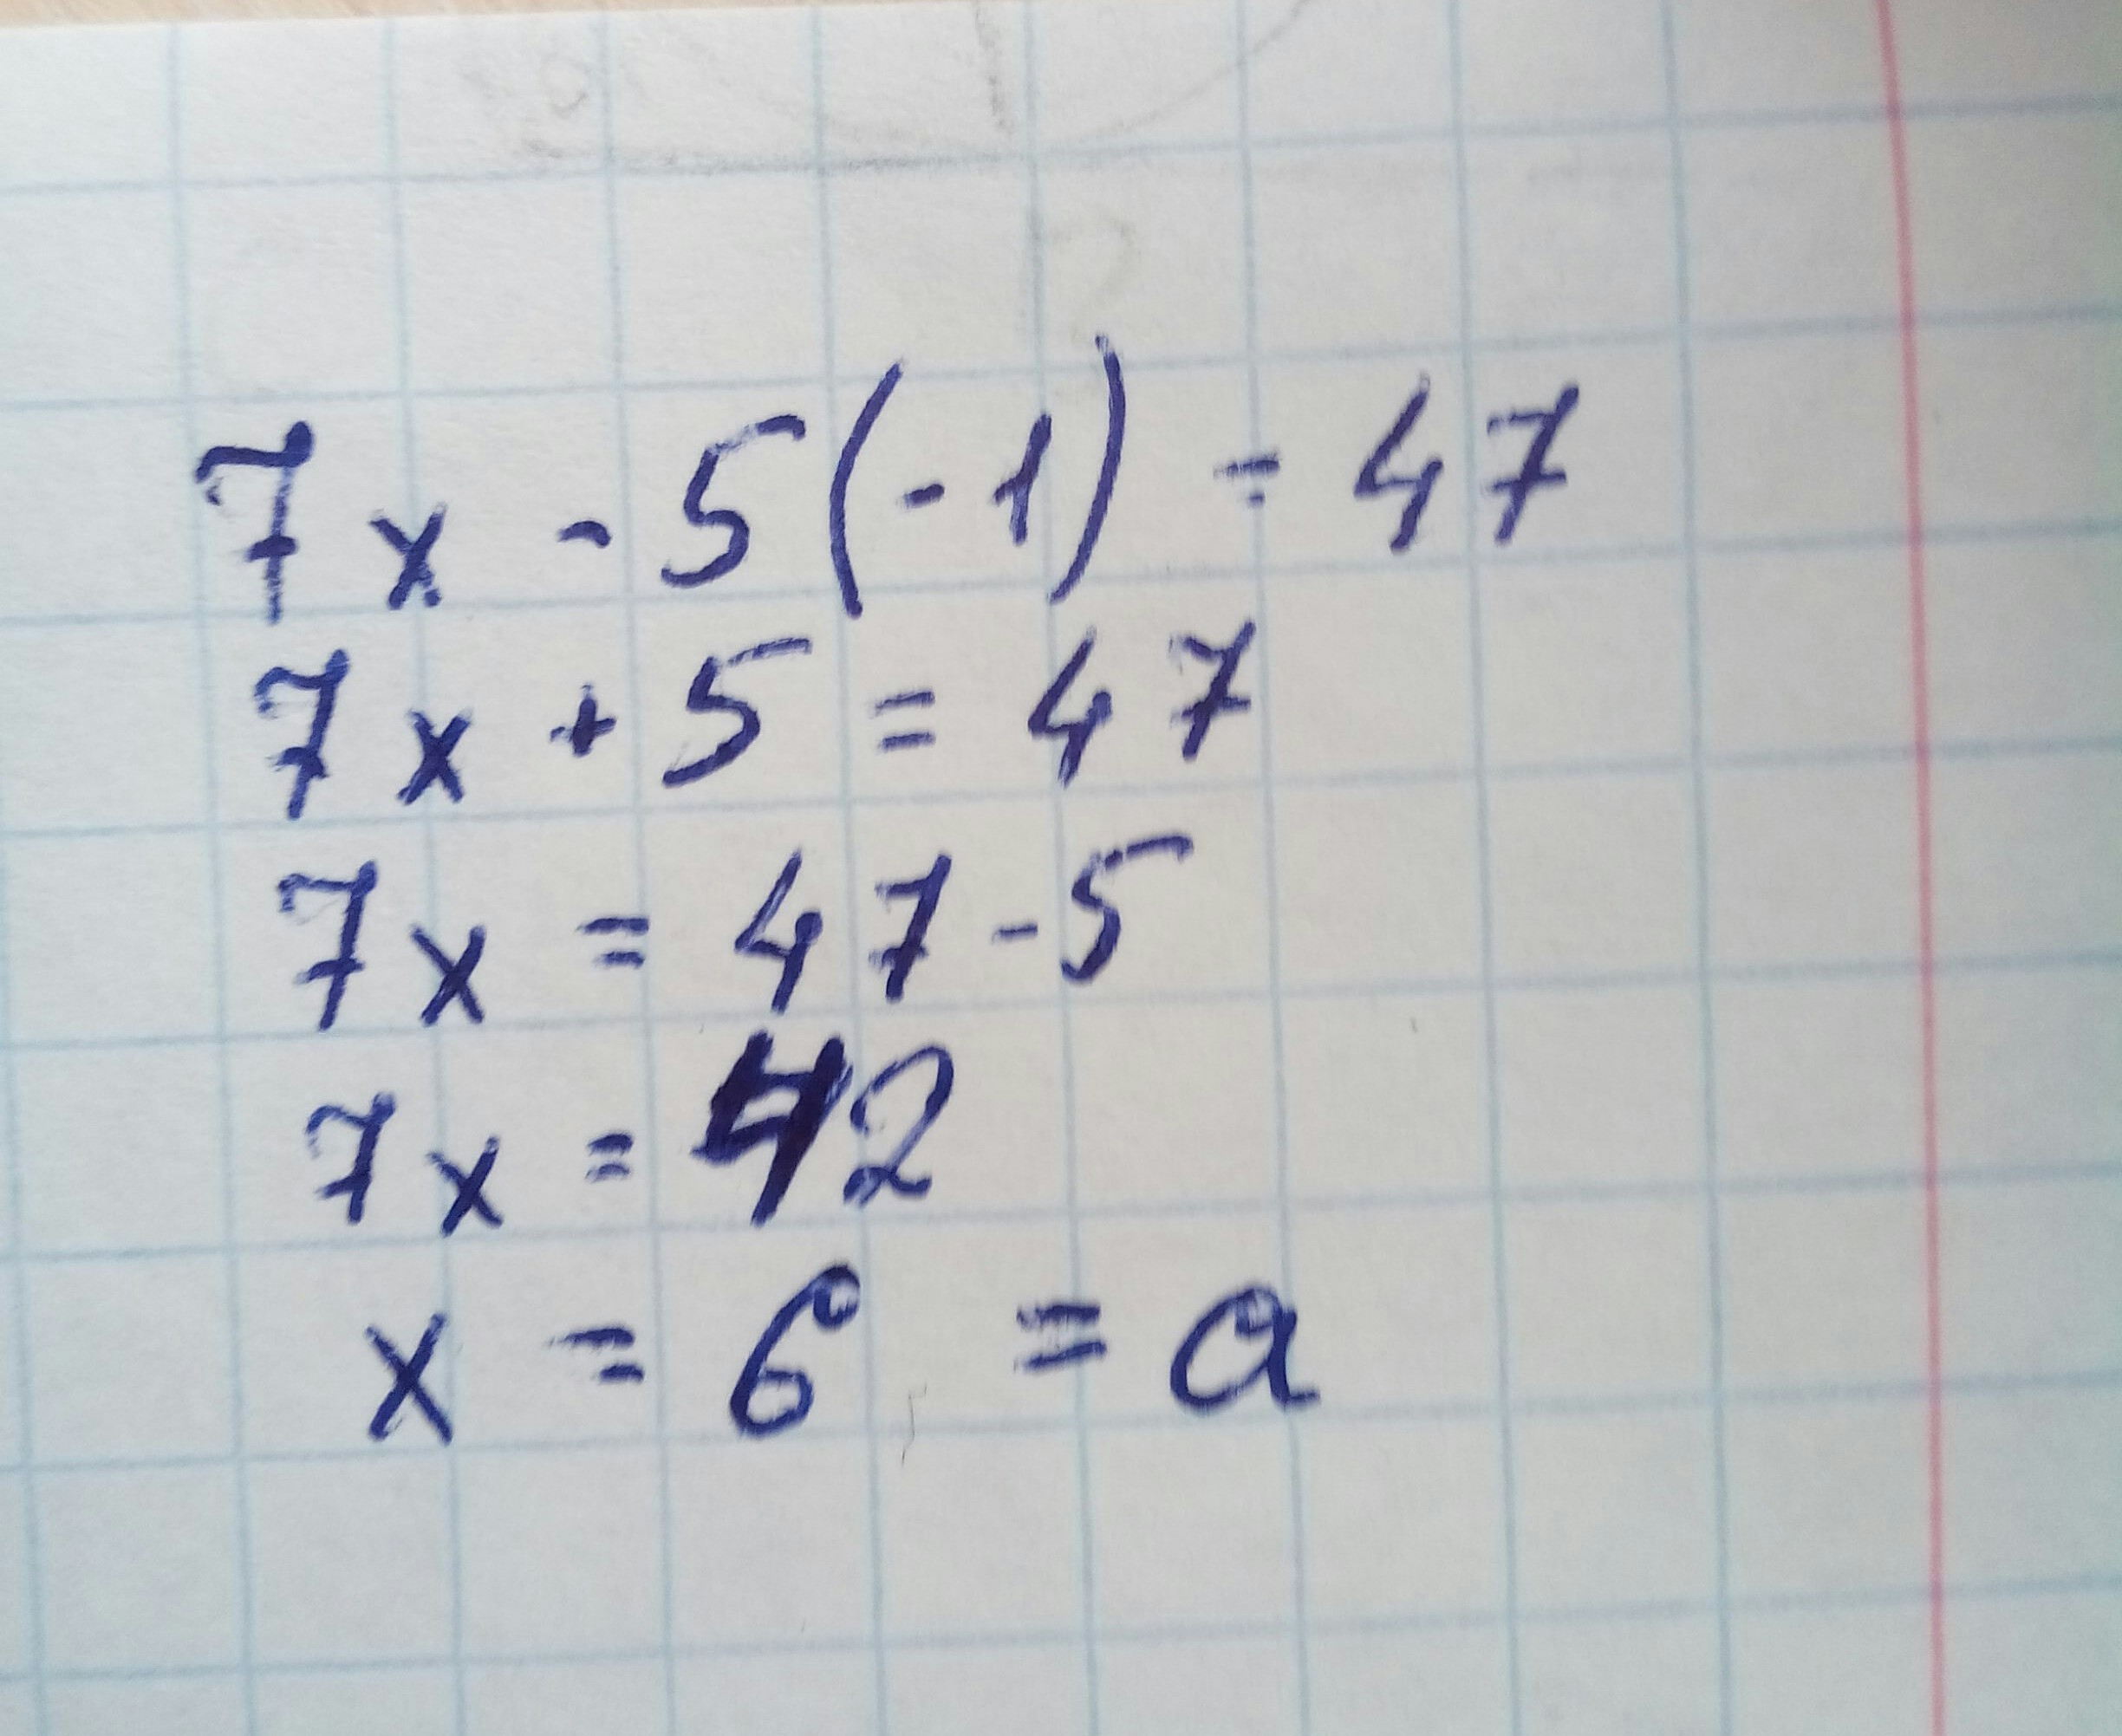 7x - 5(-1) = 47
7x + 5 = 47
7x = 47 - 5
7x = 42
x = 6 = a